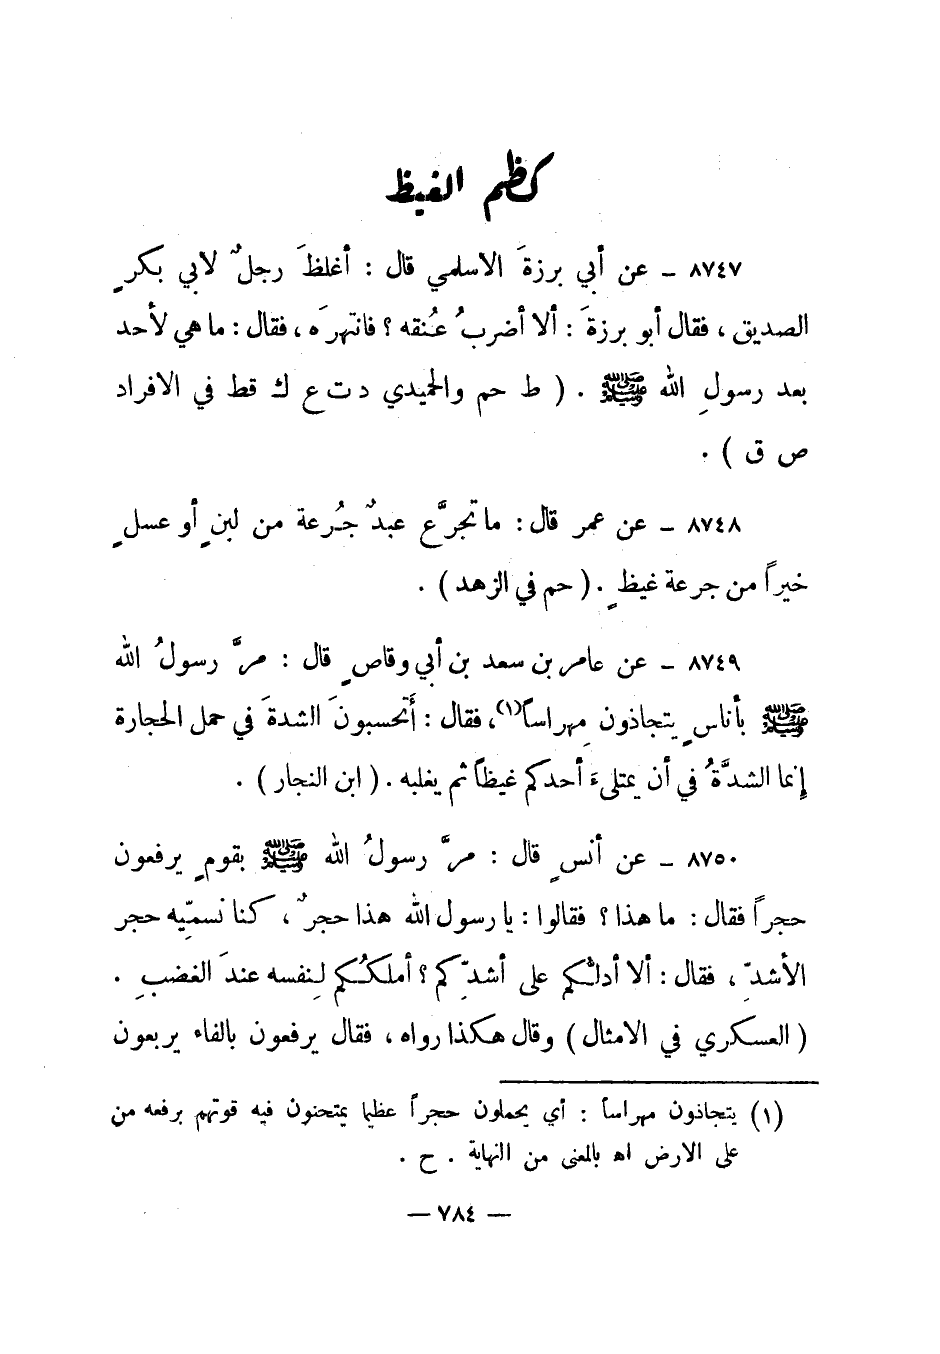 كظم الغيظ
٨٧٤٧ ـ عن أبي برزةَ الاسلمي قال : أغلظَ رجلٌ لابي بكرٍ
الصديق ، فقال أبو برزةَ : ألا أضربُ عُنقه ؟ فانتهرَه ، فقال : ما هي لأحد
بعد رسولِ الله ﷺ . ( ط حم والحميدي د ت ع ك قط في الافراد
ص ق ) .
٨٧٤٨ ـ عن عمر قال : ما تجرَّع عبدٌ جُرعة من لبنٍ أو عسلٍ
خيراً من جرعة غيظٍ . ( حم في الزهد ) .
٨٧٤٩ ـ عن عامر بن سعد بن أبي وقاصٍ قال : مرَّ رسولُ الله
ﷺ بأناسٍ يتجاذون مِهراساً(١) ، فقال : أتحسبونَ الشدةَ في حمل الحجارة
إنما الشدَّةُ في أن يمتلىءَ أحدكم غيظاً ثم يغلبه . ( ابن النجار ) .
٨٧٥٠ ـ عن أنسٍ قال : مرَّ رسولُ الله ﷺ بقومٍ يرفعون
حجراً فقال : ما هذا ؟ فقالوا : يا رسول الله هذا حجرٌ ، كنا نسمّيه حجر
الأشدِّ ، فقال : ألا أدلُّكم على أشدِّكم ؟ أملكُكم لِنفسه عندَ الغضبِ .
( العسكري في الامثال ) وقال هكذا رواه ، فقال يرفعون بالفاء يربعون
(١) يتجاذون مهراساً : أي يحملون حجراً عظيما يمتحنون فيه قوتهم برفعه من
على الارض اه بالمعنى من النهاية . ح .
— ٧٨٤ —